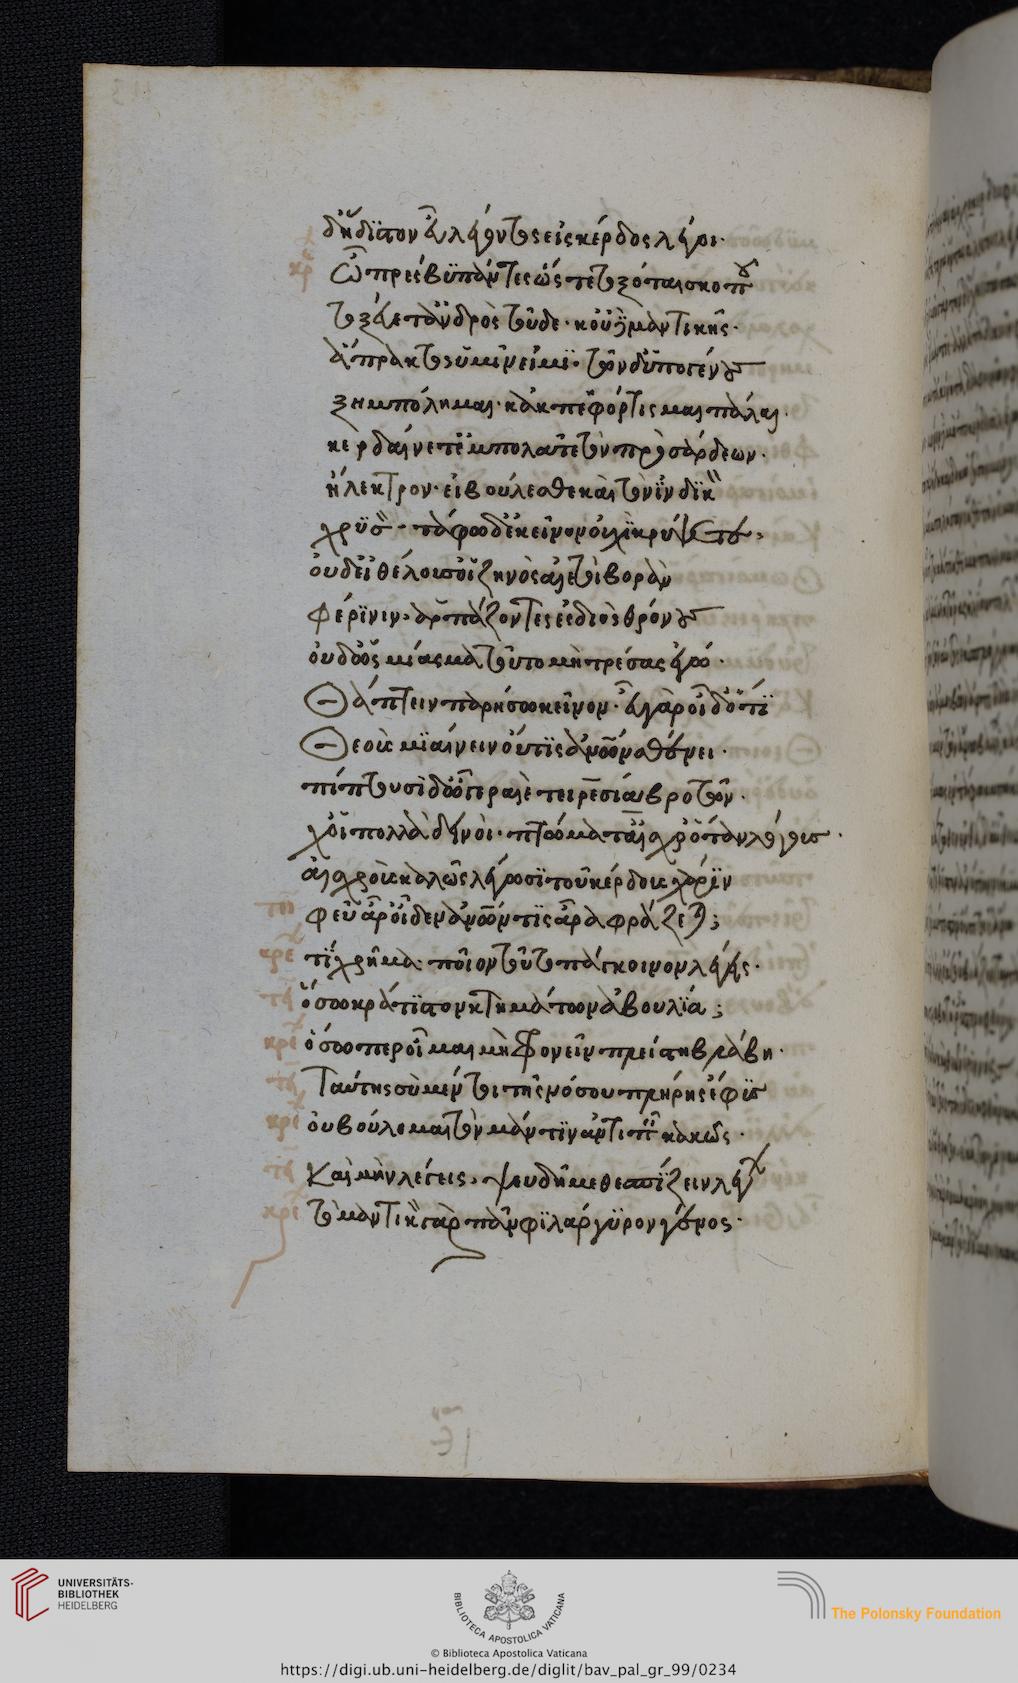 ἥδιστον εὖ λέγοντος εἰς κέρδος λέγοι.
κρ ὦ πρέσβυ πάντες ὥστε τοξόται σκοποῦ
τοξεύετ' ἀνδρὸς τοῦδε. κοὐδὲ μαντικῆς.
ἄπρακτος ὑμῖν εἰμι. τῶν δ' ὑπὸ γένους
ἐξημπόλημαι. κἀκπεφόρτισμαι πάλαι.
κερδαίνετ' ἐμπολᾶτε τὸν πρὸς σάρδεων.
ἤλεκτρον. εἰ βούλεσθε καὶ τὸν ἰνδικὸν
χρυσὸν. τάφῳ δ' ἐκεῖνον οὐχὶ κρύψετε.
οὐδ' εἰ θέλουσ' οἱ ζηνὸς αἰετοὶ βορὰν
φέρειν νιν ἁρπάζοντες ἐς διὸς θρόνους
οὐδ' ὣς μίασμα τοῦτο μὴ τρέσας ἐγώ.
Θάπτειν παρήσω κεῖνον. εὖ γὰρ οἶδ' ὅτι
Θεοὺς μιαίνειν οὔτις ἀνθρώπων σθένει.
πίπτουσι δ' ὦ γεραιὲ τειρεσία βροτῶν.
χοἰ πολλὰ δεινοὶ. πτώματ' αἴσχρ' ὅταν λόγους
αἰσχροὺς καλῶς λέγωσι τοῦ κέρδους χάριν
τει φεῦ ἆρ' οἶδεν ἀνθρώπων τις ἆρα φράζεται;
κρε τί χρῆμα. ποῖον τοῦτο πάγκοινον λέγεις.
τει ὅσῳ κράτιστον κτημάτων εὐβουλία;
κρε ὅσῳπερ οἶμαι μὴ φρονεῖν πλείστη βλάβη.
τει Ταύτης σὺ μέν τοι τῆς νόσου πλήρης ἔφυς
κρε οὐ βούλομαι τὸν μάντιν ἀντειπεῖν κακῶς.
τει Καὶ μὴν λέγεις. ψευδῆ με θεσπίζειν λέγων
κρε τὸ μαντικὸν γὰρ πᾶν φιλάργυρον γένος.
UNIVERSITÄTS-
BIBLIOTHEK
HEIDELBERG
BIBLIOTECA APOSTOLICA VATICANA
The Polonsky Foundation
© Biblioteca Apostolica Vaticana
https://digi.ub.uni-heidelberg.de/diglit/bav_pal_gr_99/0234